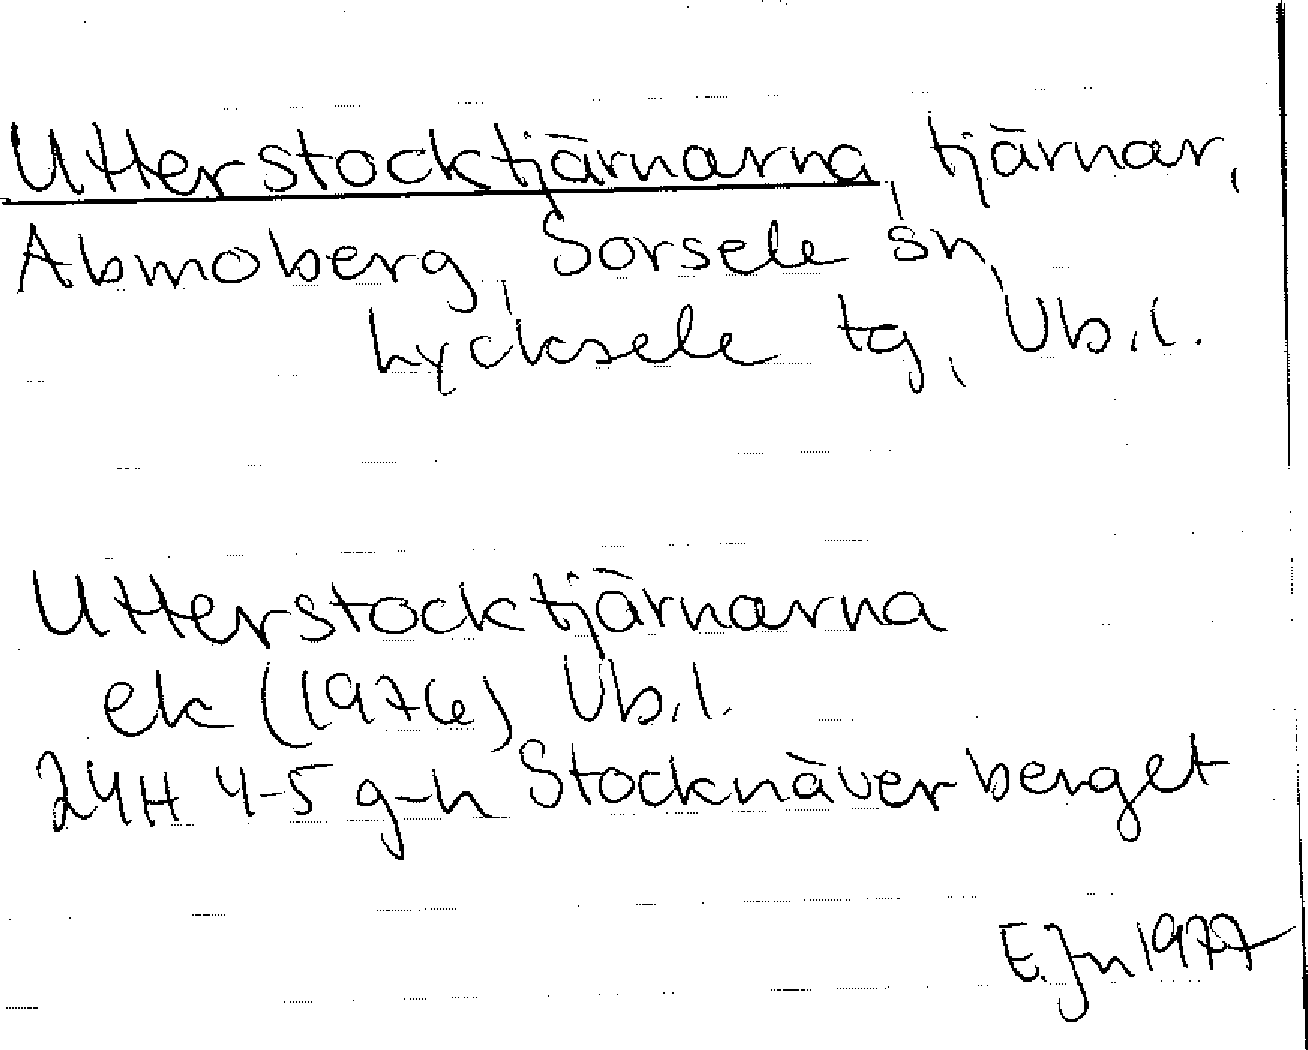 Utterstocktjärnarna, tjärnar,
Abmoberg, Sorsele sn,
Lycksele tg, Vb.l.
Utterstocktjärnarna
ek (1976) Vb.l.
24H 4-5 g-h Stocknäverberget
E.Jn 1977